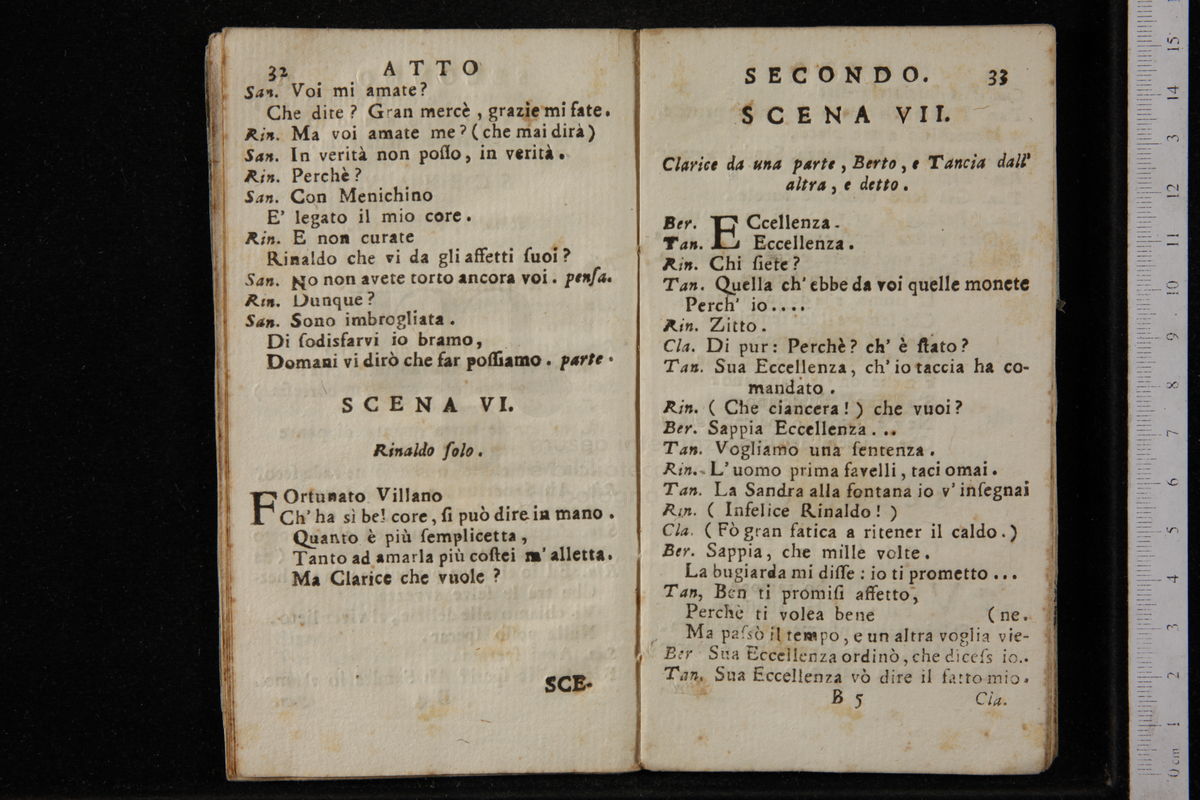 32 ATTO
San. Voi mi amate?
Che dite? Gran mercè, grazie mi fate.
Rin. Ma voi amate me? (che mai dirà)
San. In verità non poſſo, in verità.
Rin. Perchè?
San. Con Menichino
E' legato il mio core.
Rin. E non curate
Rinaldo che vi da gli affetti ſuoi?
San. No non avete torto ancora voi. penſa.
Rin. Dunque?
San. Sono imbrogliata.
Di ſodisfarvi io bramo,
Domani vi dirò che far poſſiamo. parte.
SCENA VI.
Rinaldo ſolo.
FOrtunato Villano
Ch' ha sì bel core, ſi può dire in mano.
Quanto è più ſemplicetta,
Tanto ad amarla più coſtei m' alletta.
Ma Clarice che vuole?
SCE-
SECONDO. 33
SCENA VII.
Clarice da una parte, Berto, e Tancia dall'
altra, e detto.
Ber. ECcellenza.
Tan. Eccellenza.
Rin. Chi ſiete?
Tan. Quella ch' ebbe da voi quelle monete
Perch' io....
Rin. Zitto.
Cla. Di pur: Perchè? ch' è ſtato?
Tan. Sua Eccellenza, ch' io taccia ha co-
mandato.
Rin. (Che ciancera!) che vuoi?
Ber. Sappia Eccellenza...
Tan. Vogliamo una ſentenza.
Rin. L' uomo prima favelli, taci omai.
Tan. La Sandra alla fontana io v' inſegnai
Rin. (Infelice Rinaldo!)
Cla. (Fò gran fatica a ritener il caldo.)
Ber. Sappia, che mille volte.
La bugiarda mi diſſe: io ti prometto...
Tan, Ben ti promiſi affetto,
Perchè ti volea bene (ne.
Ma paſsò il tempo, e un altra voglia vie-
Ber Sua Eccellenza ordinò, che diceſs io..
Tan. Sua Eccellenza vò dire il fatto mio.
B 5 Cla.
0 cm 1 2 3 4 5 6 7 8 9 10 11 12 3 14 15